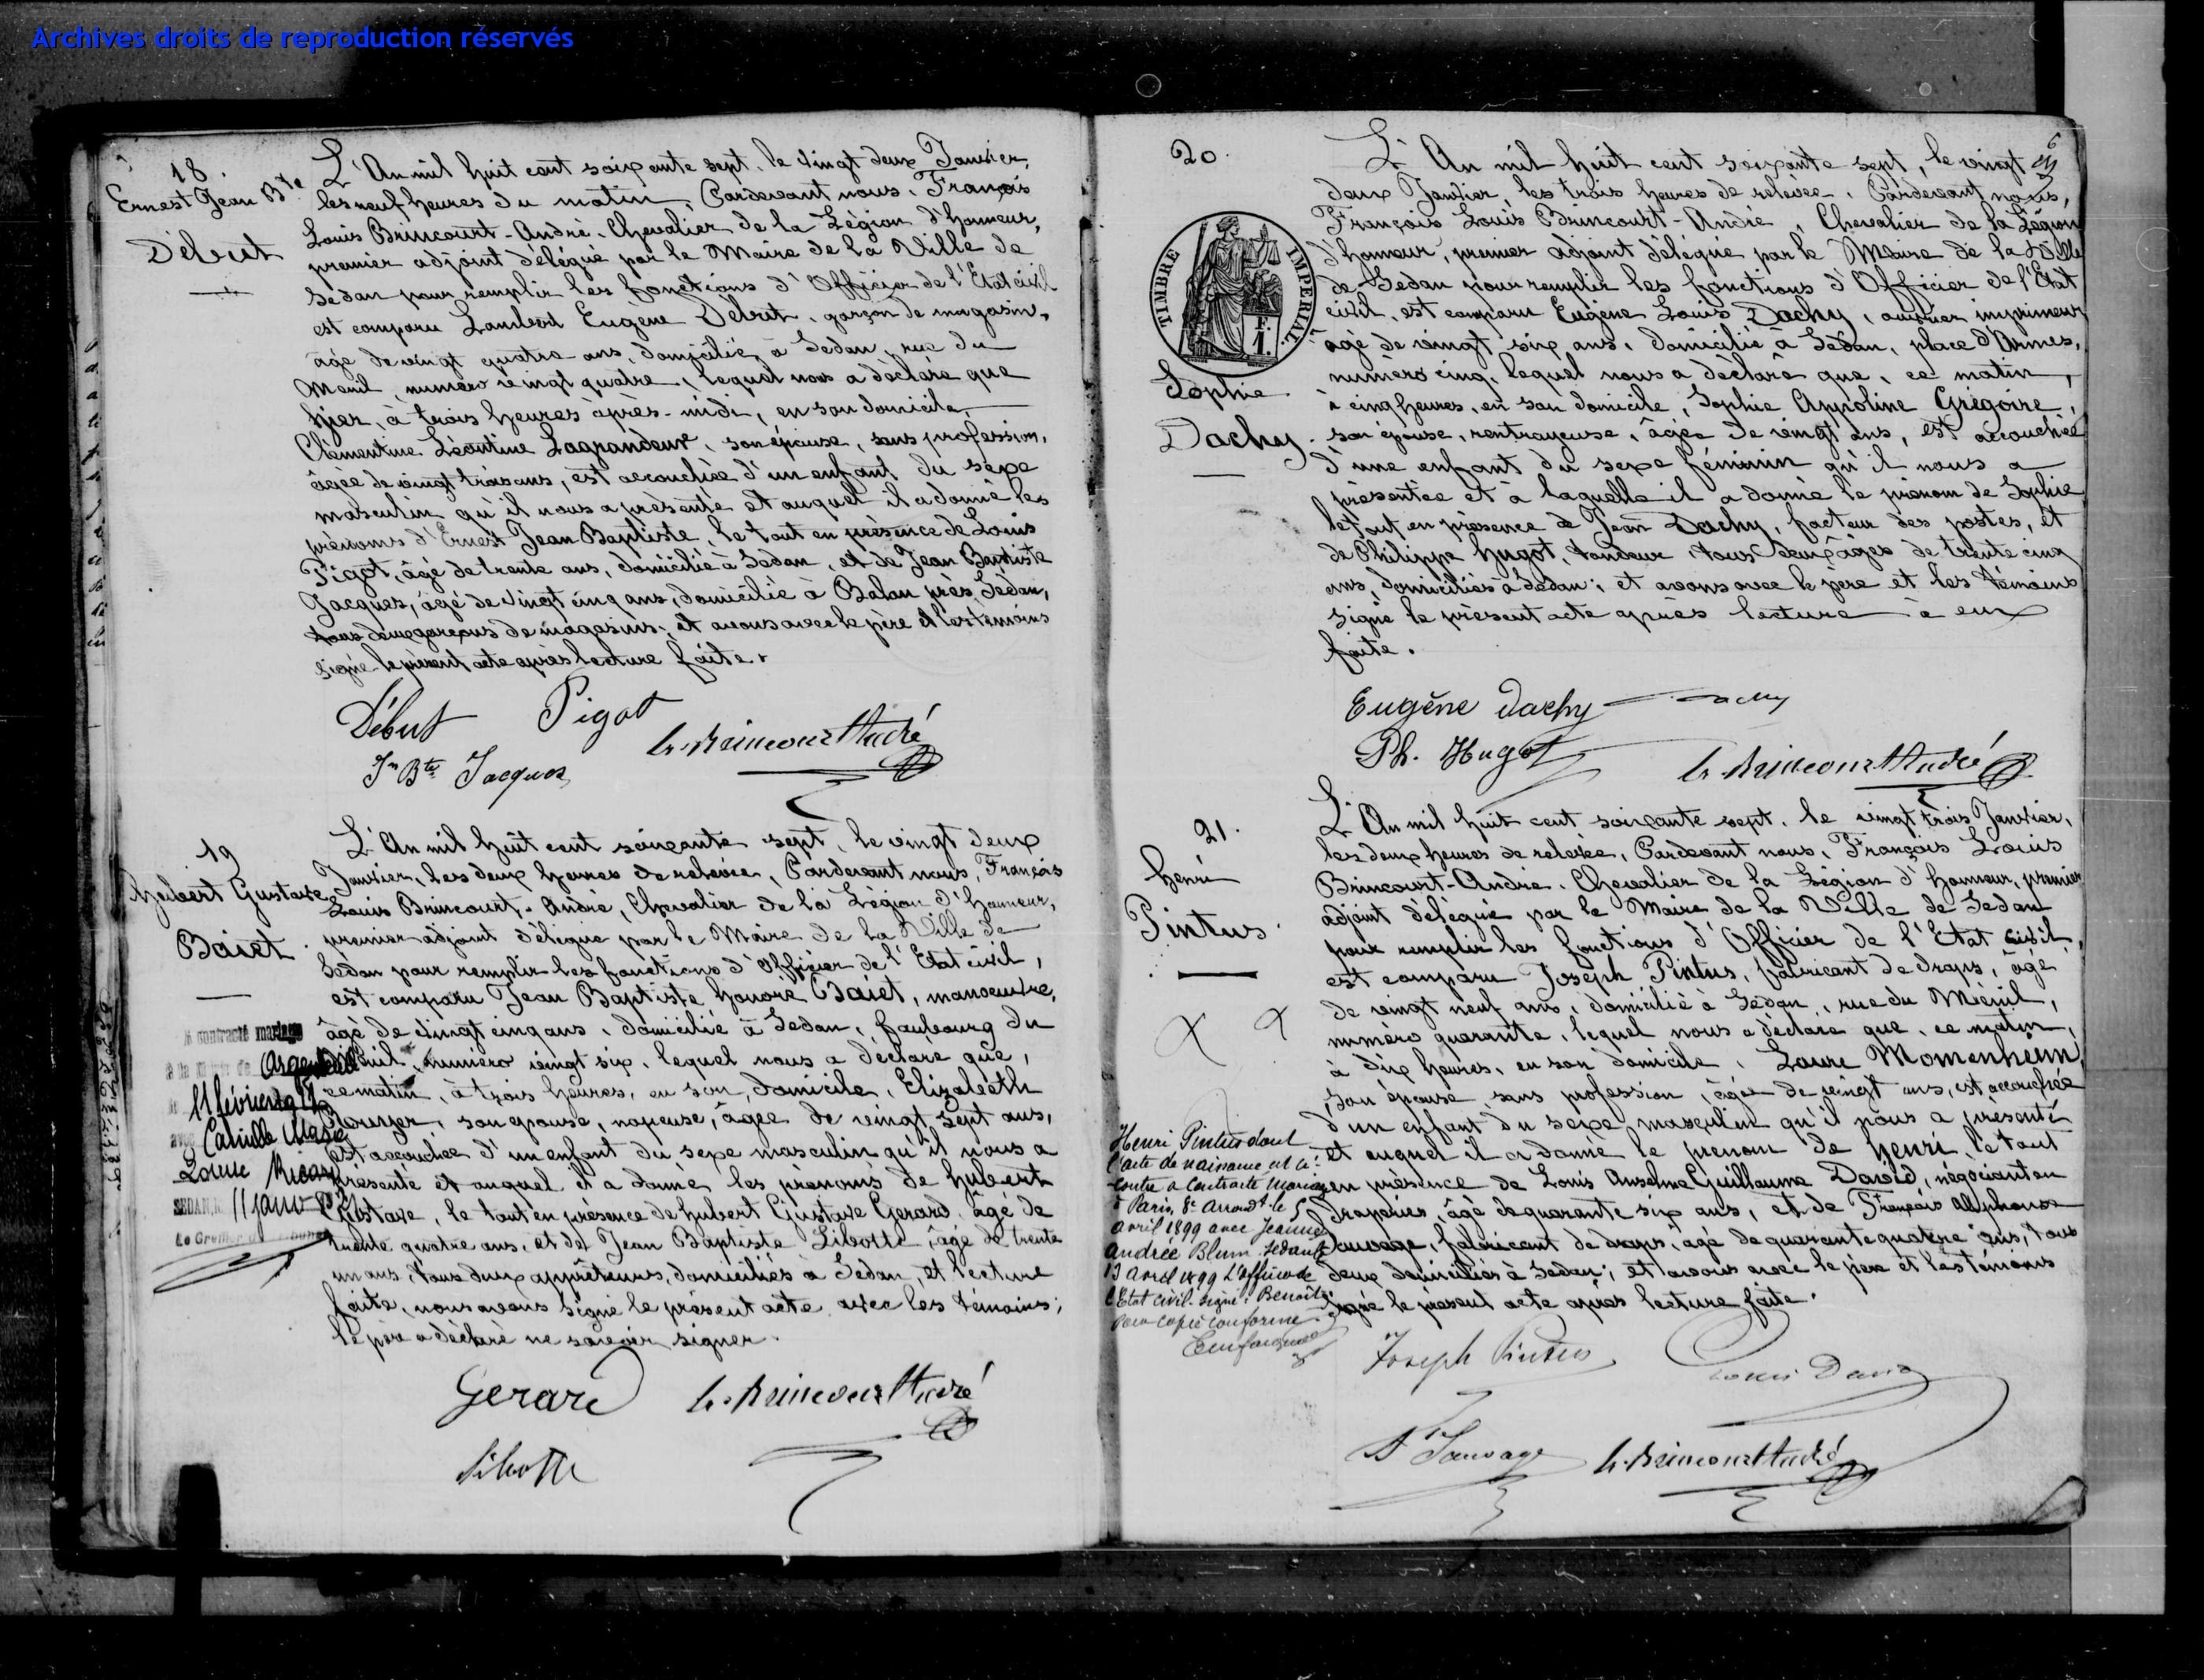 Archives droits de reproduction réservés
18.
Ernest Jean Bte
Début
L'An mil huit cent soixante sept, le vingt deux Janvier,
les neuf heures du matin, Pardevant nous, François
Louis Brincourt-André, Chevalier de la Légion d'honneur,
premier adjoint délégué par le Maire de la Ville de
Sedan pour remplir les fonctions d'Officier de l'Etat civil
est comparu Lambert Eugène Début, garçon de magasin,
âgé de vingt quatre ans, domicilié à Sedan, rue du
Menil, numéro vingt quatre, lequel nous a déclaré que
hier, à trois heures après-midi, en son domicile,
Clémentine Léontine Lagrandeur, son épouse, sans profession,
âgée de vingt trois ans, est accouchée d'un enfant du sexe
masculin qu'il nous a présenté et auquel il a donné les
prénoms d'Ernest Jean Baptiste, le tout en présence de Louis
Pigot, âgé de trente ans, domicilié à Sedan, et de Jean Baptiste
Jacques, âgé de vingt cinq ans, domicilié à Balan près Sedan,
tous deux garçons de magasins; et avons avec le père et les témoins
signé le présent acte après lecture faite.
Début Pigot
Jn Bte Jacques L. Brincourt André
19
Hubert Gustave
Baiet.
L'An mil huit cent soixante sept, le vingt deux
Janvier, les deux heures de relevée, Pardevant nous, François
Louis Brincourt-André, Chevalier de la Légion d'Honneur,
premier adjoint délégué par le Maire de la Ville de
Sedan pour remplir les fonctions d'Officier de l'Etat civil,
est comparu Jean Baptiste honoré Baiet, manoeuvre,
âgé de vingt cinq ans, domicilié à Sedan, faubourg du
Menil, numéro vingt six, lequel nous a déclaré que,
ce matin, à trois heures, en son domicile, Elizabeth
son épouse, nopeuse, âgée de vingt sept ans,
est accouchée d'un enfant du sexe masculin qu'il nous a
présenté et auquel il a donné les prénoms de hubert
Gustave, le tout en présence de hubert Gustave Gerard, âgé de
trente quatre ans, et de Jean Baptiste Libotte, âgé de trente
un ans, tous deux apprêteurs, domiciliés à Sedan, et lecture
faite, nous avons signé le présent acte avec les témoins;
le père a déclaré ne savoir signer.
A contracté mariage
à la Mairie de Argenteuil
le 11 février
avec
Louise
SEDAN, le 11 janv
Le Greffier
Gerard L. Brincourt André
Libotte
20.
TIMBRE IMPERIAL.
1 F.
Sophie
Dachy.
L'An mil huit cent soixante sept, le vingt
deux Janvier, les trois heures de relevée, Pardevant nous,
François Louis Brincourt-André, Chevalier de la Légion
d'honneur, premier adjoint délégué par le Maire de la Ville
de Sedan pour remplir les fonctions d'Officier de l'Etat
civil, est comparu Eugène Louis Dachy, ouvrier imprimeur
âgé de vingt six ans, domicilié à Sedan, place d'Armes,
numéro cinq, lequel nous a déclaré que, ce matin,
à cinq heures, en son domicile, Sophie Appoline Grégoire,
son épouse, rentrayeuse, âgée de vingt ans, est accouchée
d'une enfant du sexe féminin qu'il nous a
présentée et à laquelle il a donné le prénom de Sophie
le tout en présence de Jean Dachy, facteur des postes, et
de Philippe Hugot, tondeur tous deux âgés de trente cinq
ans, domiciliés à Sedan; et avons avec le père et les témoins
signé le présent acte après lecture à eux
faite.
Eugène Dachy Dachy
Ph. Hugot L. Brincourt André
21.
henri
Pintus.
L'An mil huit cent soixante sept, le vingt trois Janvier,
les deux heures de relevée, Pardevant nous, François Louis
Brincourt-André, Chevalier de la Légion d'honneur, premier
adjoint délégué par le Maire de la Ville de Sedan
pour remplir les fonctions d'Officier de l'Etat civil,
est comparu Joseph Pintus, fabricant de draps, âgé
de vingt neuf ans, domicilié à Sedan, rue du Ménil,
numéro quarante, lequel nous a déclaré que, ce matin,
à dix heures, en son domicile, Laure Momenheim,
son épouse, sans profession, âgée de vingt ans, est accouchée
d'un enfant du sexe masculin qu'il nous a présenté
et auquel il a donné le prénom de henri, le tout
en présence de Louis Anselme Guillaume David, négociant en
draperies, âgé de quarante six ans, et de François Alphonse
Sauvage, fabricant de draps, âgé de quarante quatre ans, tous
deux domiciliés à Sedan; et avons avec le père et les témoins
signé le présent acte après lecture faite.
Henri Pintus dont
l'acte de naissance est ci-
contre a contracté mariage
à Paris, 8e Arrondt le 5
avril 1899 avec Jeanne
Andrée Blum. Sedan le
13 avril 1899 L'officier de
l'Etat civil. signé: Benoît
Pour copie conforme
Joseph Pintus Louis David
A Sauvage L. Brincourt André